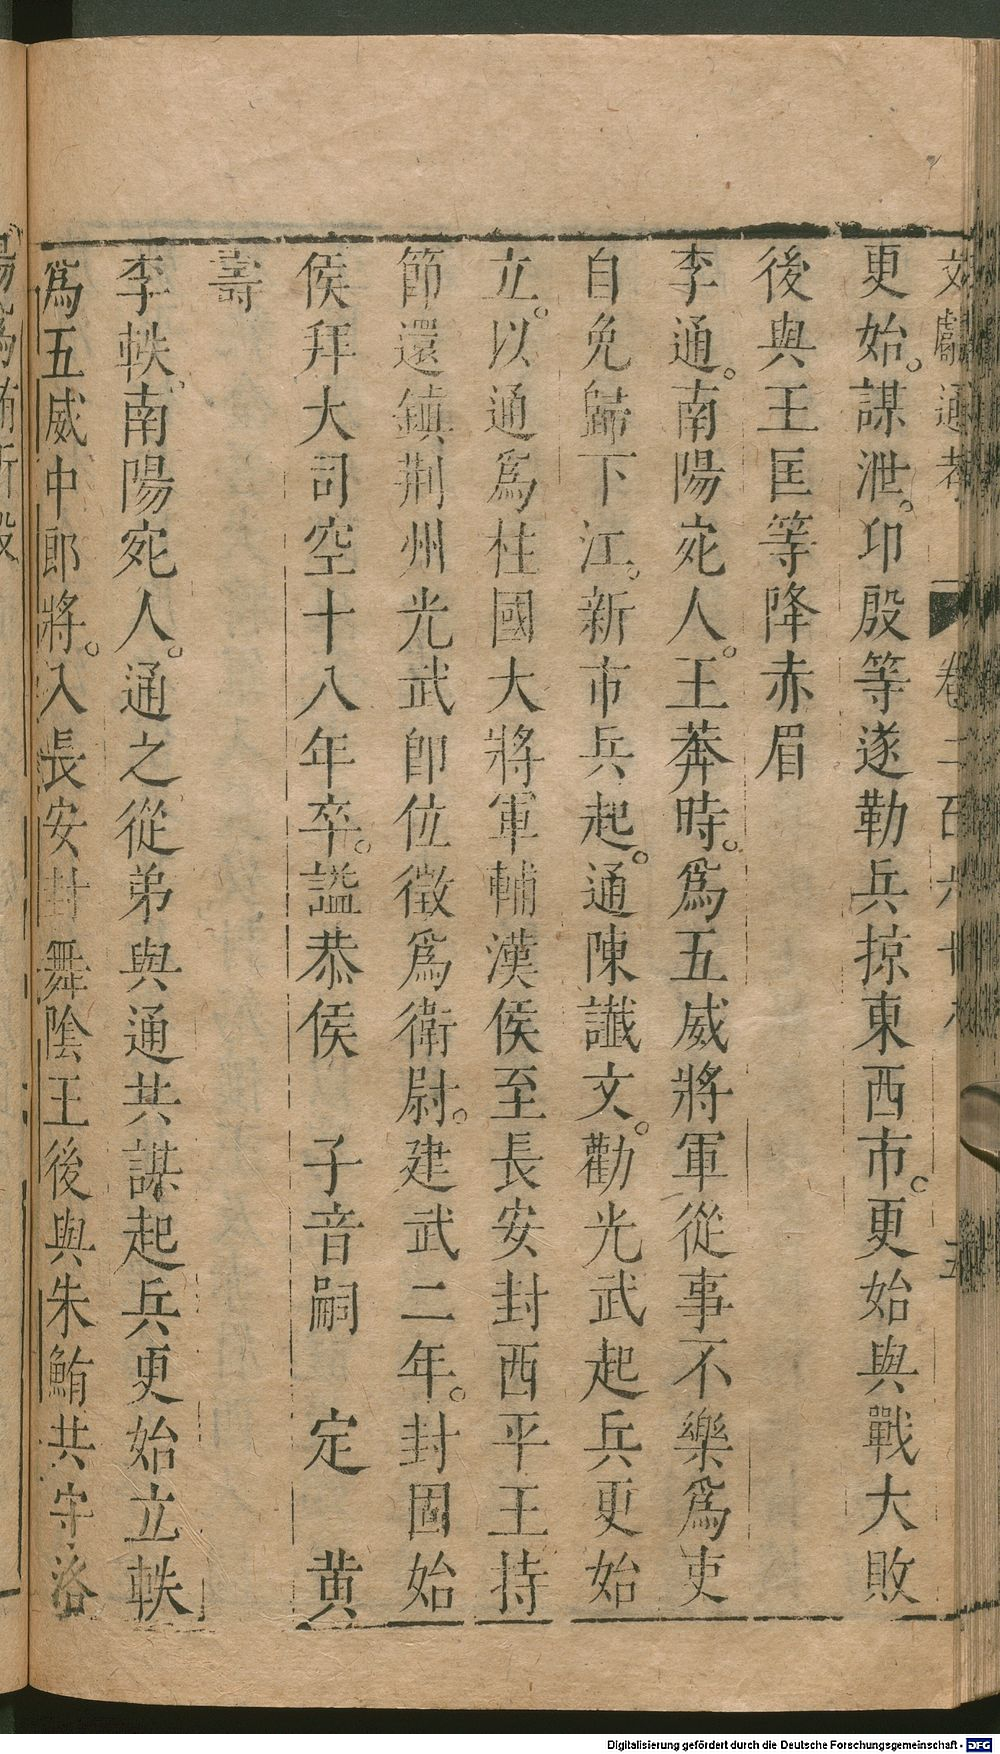 文獻通考 卷二百六十八 五
更始。謀泄。卬殷等遂勒兵掠東西市。更始與戰大敗
後與王匡等降赤眉
李通。南陽宛人。王莽時。爲五威將軍從事不樂爲吏
自免歸下江。新市兵起。通陳讖文。勸光武起兵更始
立。以通爲柱國大將軍輔漢侯至長安封西平王持
節還鎮荆州光武卽位徵爲衛尉。建武二年。封固始
侯拜大司空十八年卒。謚恭侯 子音嗣 定 黃
壽
李軼。南陽宛人。通之從弟與通共謀起兵更始立軼
爲五威中郎將。入長安封舞陰王後與朱鮪共守洛
Digitalisierung gefördert durch die Deutsche Forschungsgemeinschaft - DFG